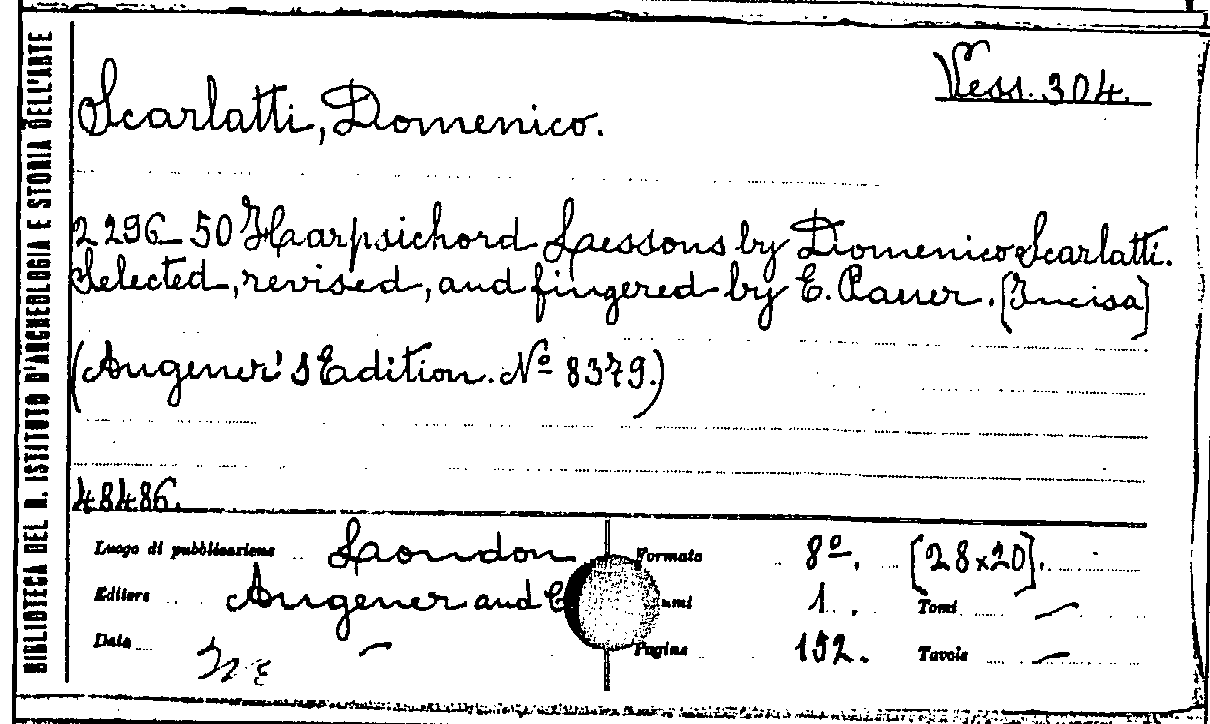 BIBLIOTECA DEL R. ISTITUTO D'ARCHEOLOGIA E STORIA DELL'ARTE
Vess. 304.
Scarlatti, Domenico.
2296_50 Harpsichord Laessons by Domenico Scarlatti.
Selected, revised, and fingered by E. Pauer. [Incisa]
(Augener's Edition. Nº 8379.)
48486.
Luogo di pubblicazione London Formato 8º. [28x20].
Editore Augener and 1. Tomi –
Data – Pagine 192. Tavole –